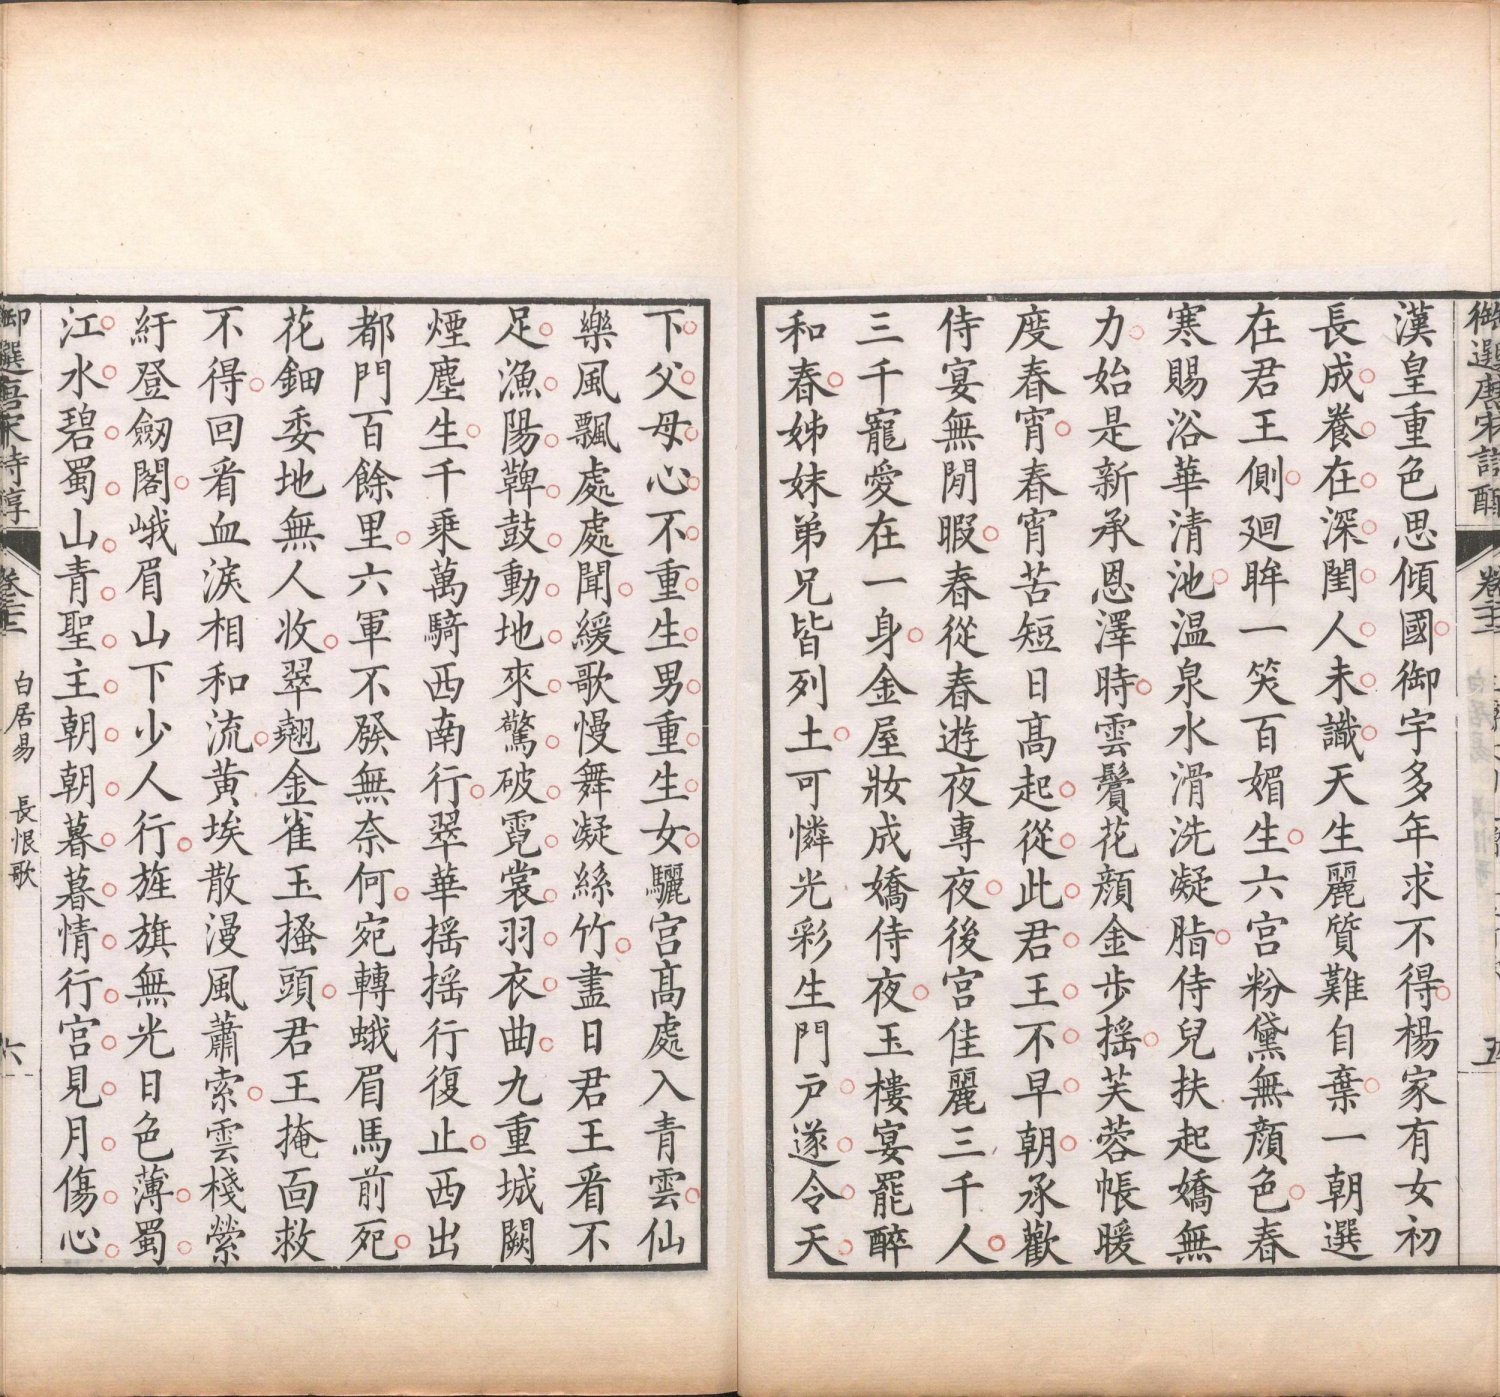 漢皇重色思傾國御宇多年求不得楊家有女初
長成養在深閨人未識天生麗質難自棄一朝選
在君王側廻眸一笑百媚生六宮粉黛無顏色春
寒賜浴華清池温泉水滑洗凝脂侍兒扶起嬌無
力始是新承恩澤時雲鬢花顏金步搖芙蓉帳暖
度春宵春宵苦短日髙起從此君王不早朝承歡
侍宴無閒暇春從春遊夜專夜後宮佳麗三千人
三千寵愛在一身金屋妝成嬌侍夜玉樓宴罷醉
和春姊妹弟兄皆列土可憐光彩生門戸遂令天
下父母心不重生男重生女驪宮髙處入青雲仙
樂風飄處處聞緩歌慢舞凝絲竹盡日君王看不
足漁陽鞞鼓動地來驚破霓裳羽衣曲九重城闕
煙塵生千乘萬騎西南行翠華搖搖行復止西出
都門百餘里六軍不發無奈何宛轉蛾眉馬前死
花鈿委地無人收翠翹金雀玉搔頭君王掩面救
不得回看血淚相和流黃埃散漫風蕭索雲棧縈
紆登劒閣峨眉山下少人行旌旗無光日色薄蜀
江水碧蜀山青聖主朝朝暮暮情行宮見月傷心
御選唐宋詩醇 卷二十二 白居易 長恨歌 六